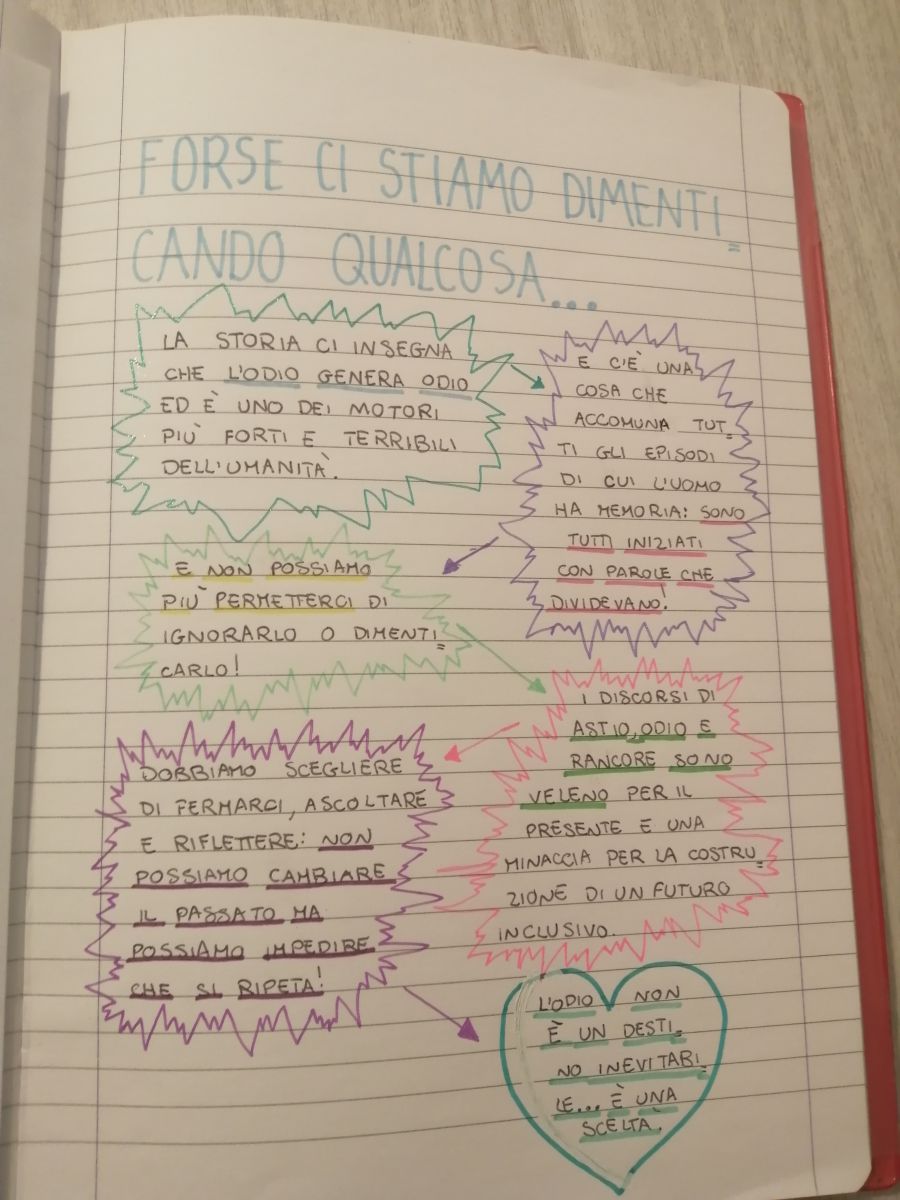 FORSE CI STIAMO DIMENTI=
CANDO QUALCOSA...
LA STORIA CI INSEGNA
CHE L'ODIO GENERA ODIO
ED È UNO DEI MOTORI
PIÙ FORTI E TERRIBILI
DELL'UMANITÀ.
E C'È UNA
COSA CHE
ACCOMUNA TUT=
TI GLI EPISODI
DI CUI L'UOMO
HA MEMORIA: SONO
TUTTI INIZIATI
CON PAROLE CHE
DIVIDEVANO!
E NON POSSIAMO
PIÙ PERMETTERCI DI
IGNORARLO O DIMENTI=
CARLO!
I DISCORSI DI
ASTIO, ODIO E
RANCORE SONO
VELENO PER IL
PRESENTE E UNA
MINACCIA PER LA COSTRU=
ZIONE DI UN FUTURO
INCLUSIVO.
DOBBIAMO SCEGLIERE
DI FERMARCI, ASCOLTARE
E RIFLETTERE: NON
POSSIAMO CAMBIARE
IL PASSATO MA
POSSIAMO IMPEDIRE
CHE SI RIPETA!
L'ODIO NON
È UN DESTI=
NO INEVITABI=
LE... È UNA
SCELTA.